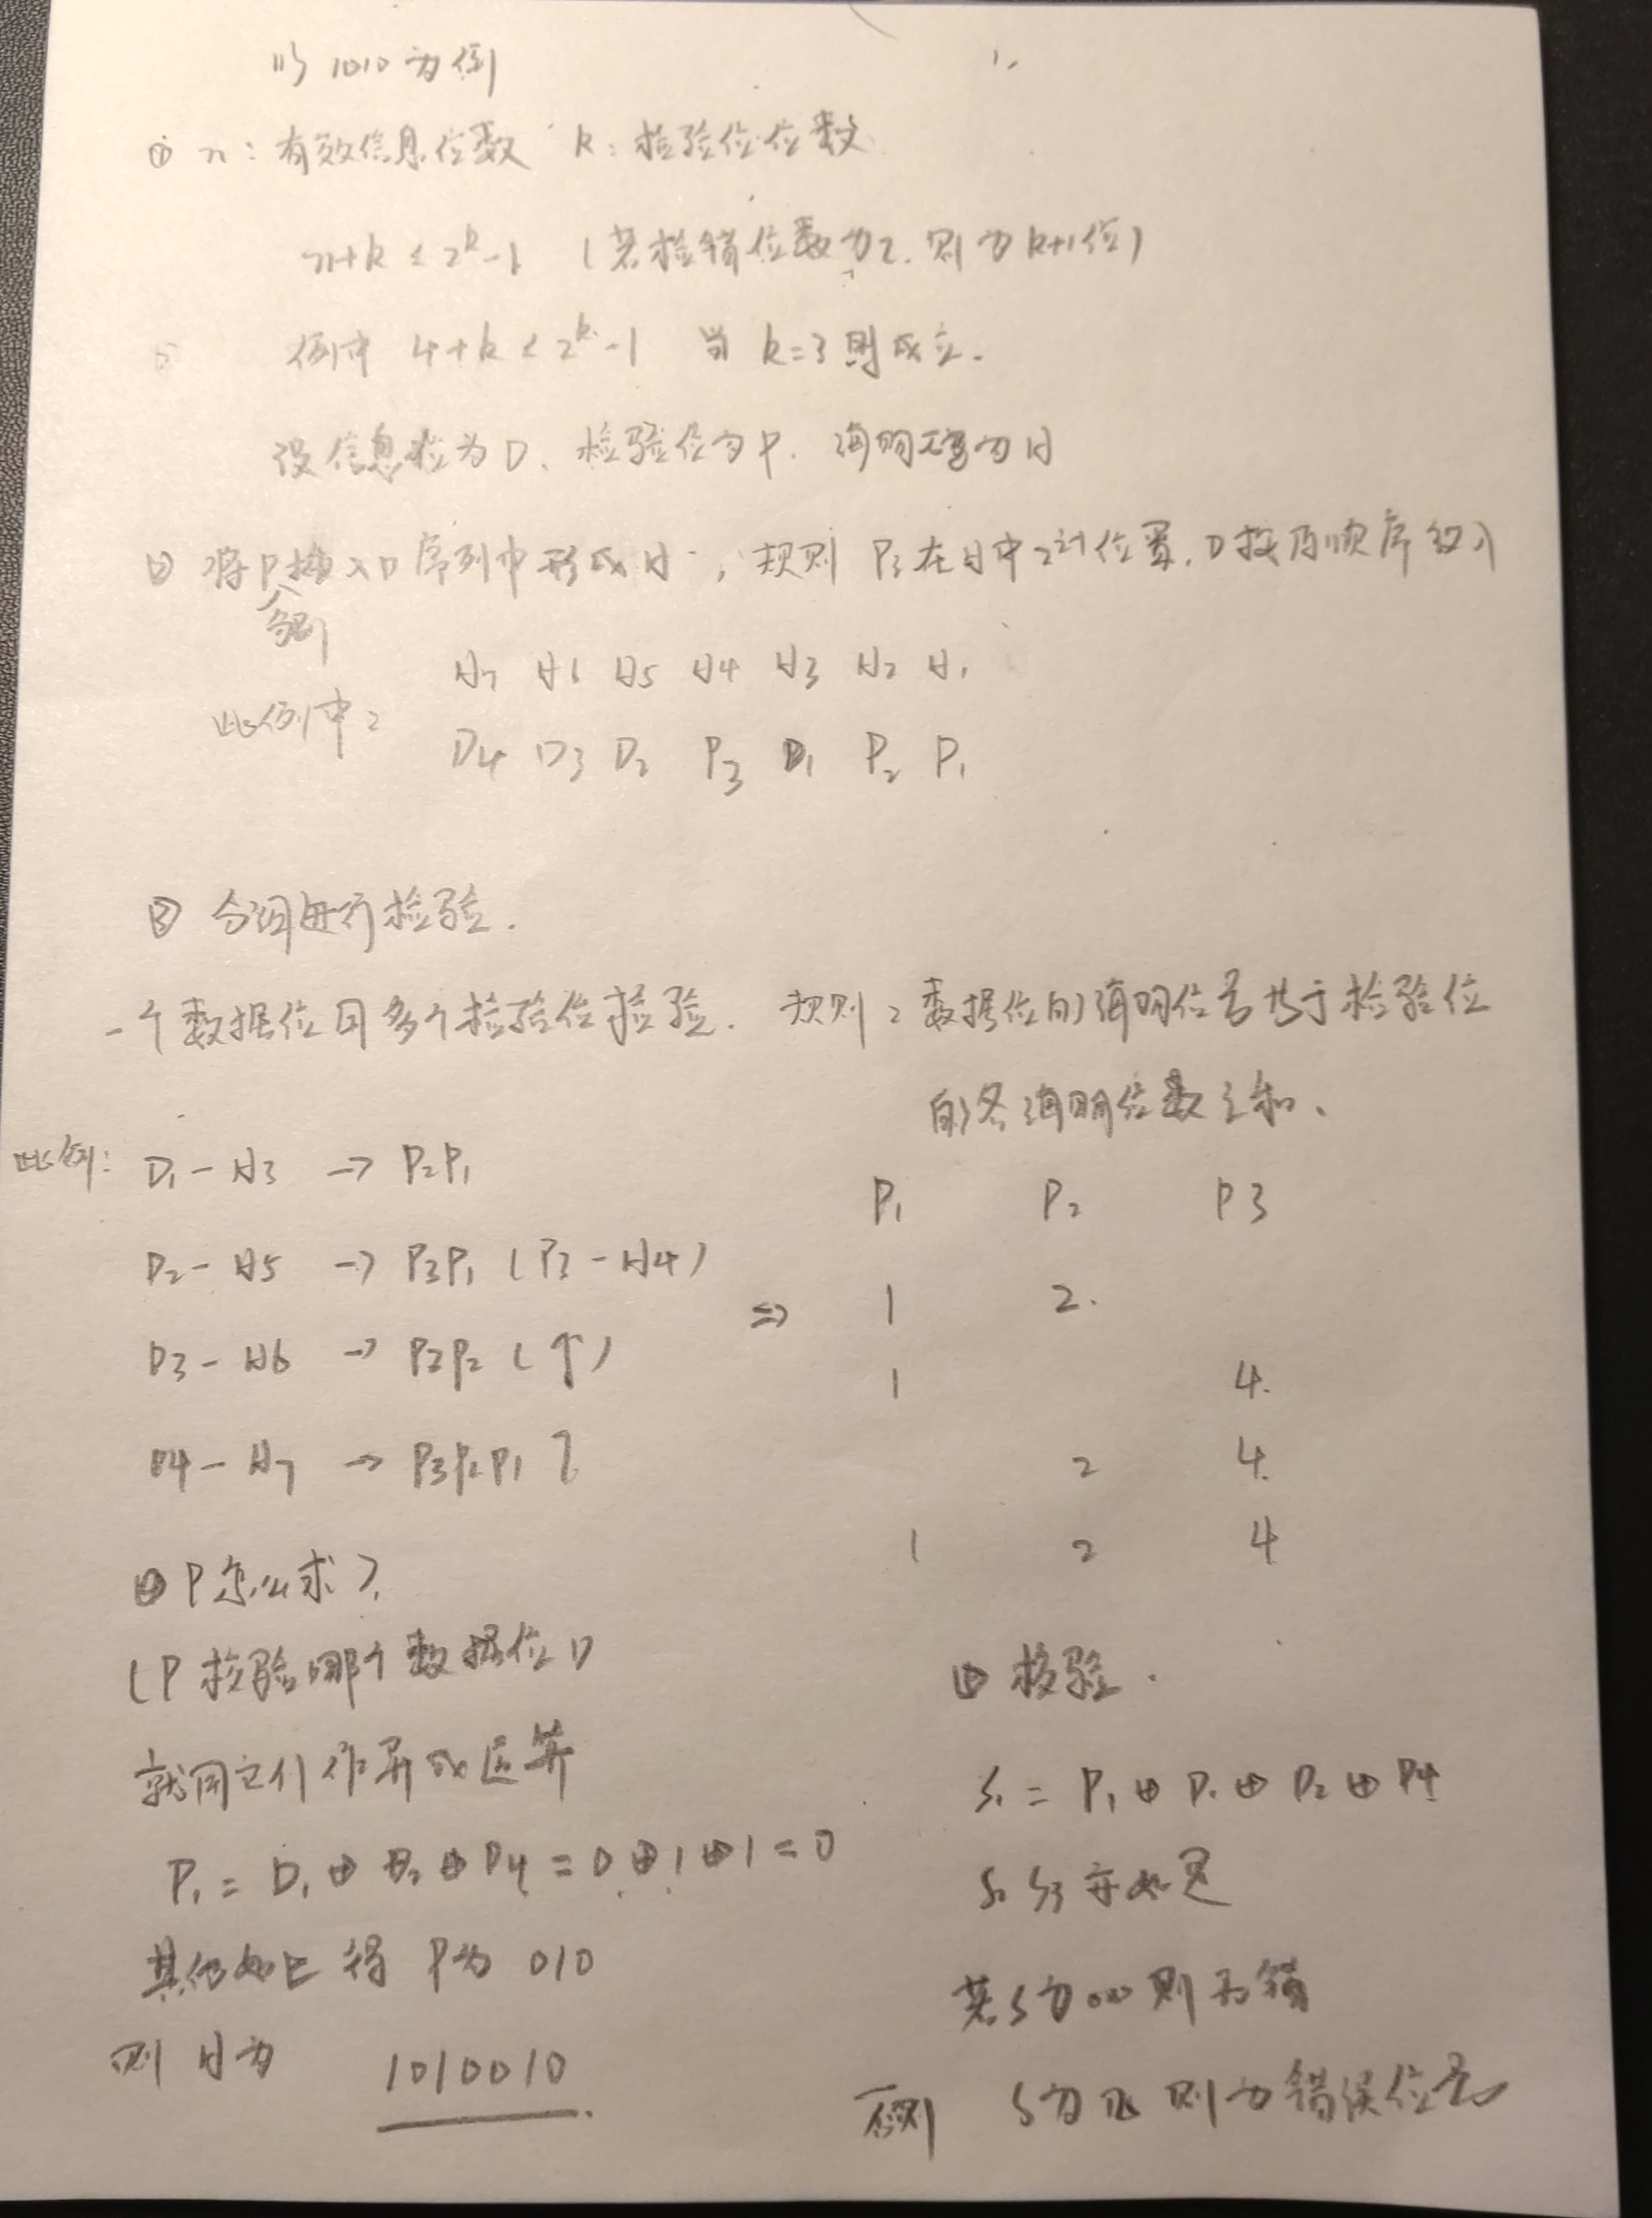 以1010为例
① n:有效信息位数 k:检验位位数
n+k≤2^k-1 (若检错位数为2.则为k+1位)
例中 4+k≤2^k-1 当k=3则成立.
设信息位为D、检验位为P.海明码为H
② 将P插入D序列中形成H,规则Pi在H中2^i-1位置.D按原顺序
例
H7 H6 H5 H4 H3 H2 H1
此例中:
D4 D3 D2 P3 D1 P2 P1
③ 分组进行检验.
一个数据位用多个检验位检验. 规则:数据位的海明位号等于检验位
的各海明位数之和、
此例: D1-H3 → P2P1
P1 P2 P3
D2-H5 → P3P1 (P3-H4)
⇒ 1 2.
D3-H6 → P3P2 (↑)
1 4.
D4-H7 → P3P2P1
2 4.
1 2 4
④P怎么求?
(P检验哪个数据位D
就用它们作异或运算
P1=D1⊕D2⊕D4=0⊕1⊕1=0
其他如上 得P为 010
则H为 1010010.
校验.
S1=P1⊕D1⊕D2⊕D4
S2 S3亦如是
若S为000则无错
否则 S为几则为错误位号